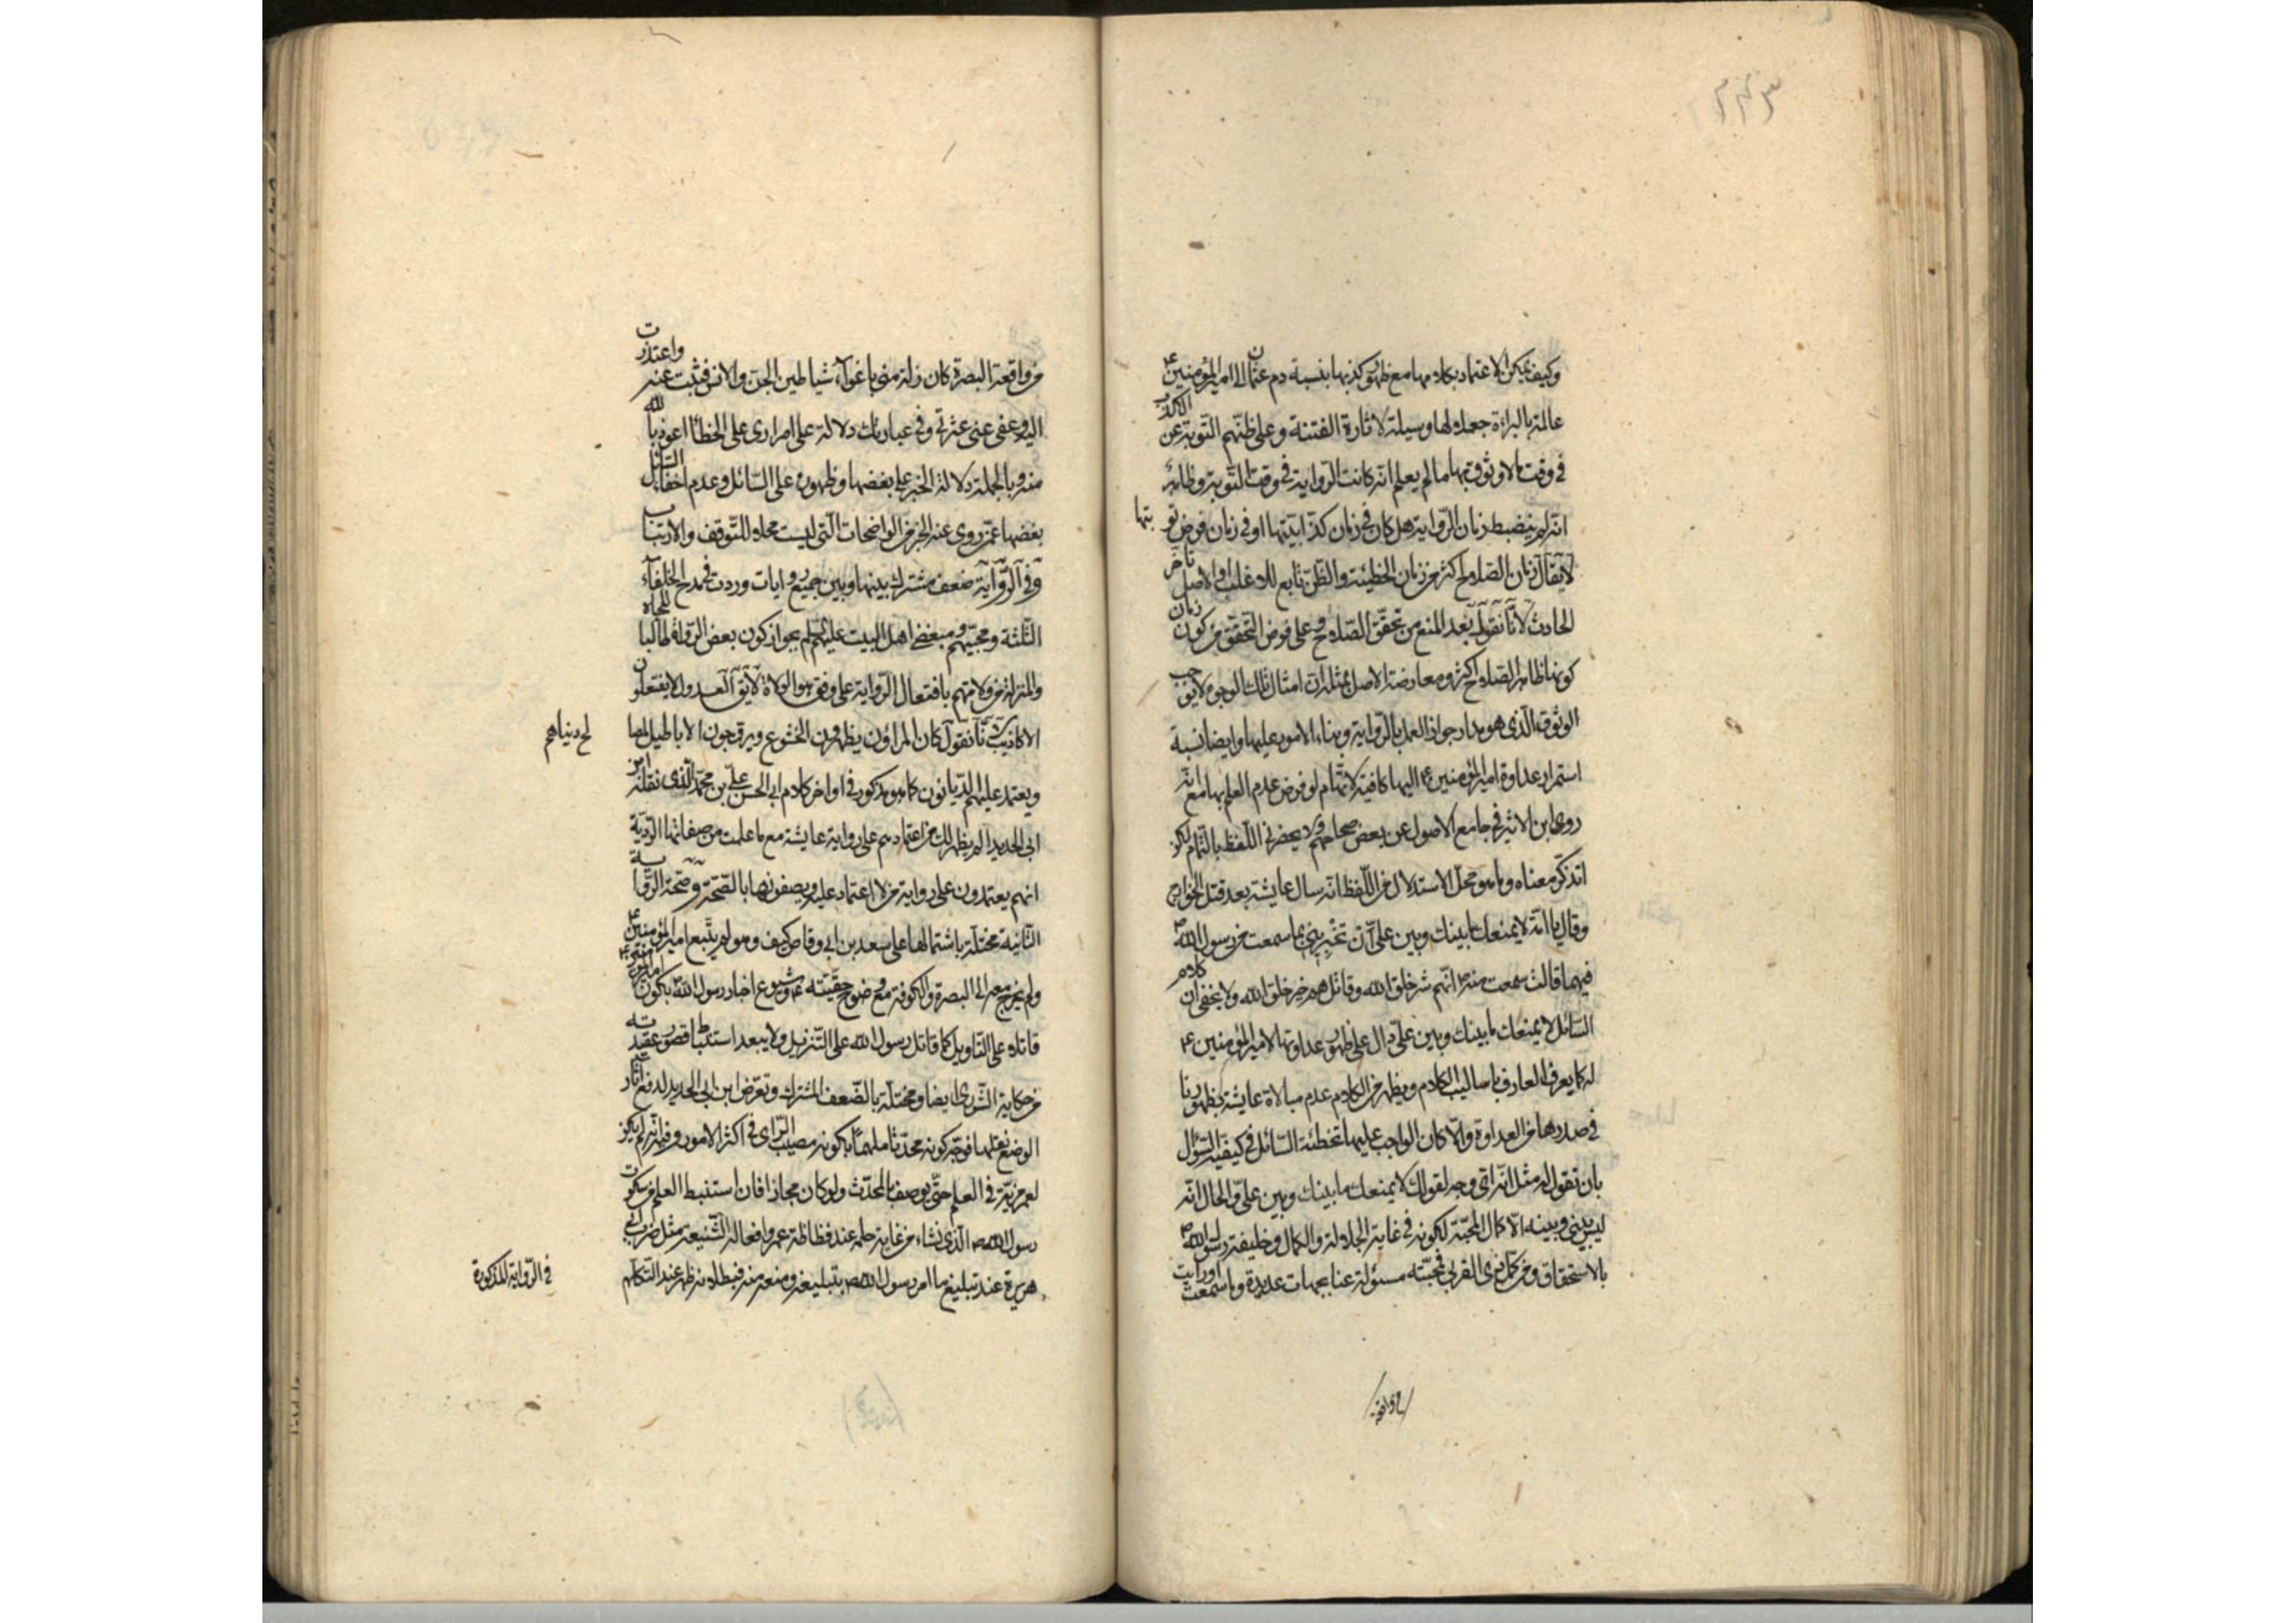 وكيف يمكن الاعتماد بكلامها مع ظهور كذبها بنسبة دم عثمان الى امير المؤمنين ع
عالمة بالبراءة جعله لها وسيلة لاثارة الفتنة وعلى ظنهم التوبة عن الكذب
في وقت لا وثوق بها ما لم يعلم انه كانت الرواية في وقت التوبة وظاهر
انه لم ينضبط زمان الرواية هل كان في زمان كذابيتها او في زمان فرض توبتها
لا يقال زمان الصلاح اكثر من زمان الخطيئة والظن تابع للاغلب والاصل تأخر
الحادث لانا نقول بعد المنع من تحقق الصلاح وعلى فرض التحقق من كون زمان
كونها ظاهر الصلاح اكثر ومعارضة الاصل بمثله ان امثال تلك الوجوه لا يوجب
الوثوق الذي هو مدار جواز العمل بالرواية وبناء الامور عليها وايضا نسبة
استمرار عداوة امير المؤمنين ع اليها كافية لاتهام لو فرض عدم العلم بها مع انه
روى ابن الاثير في جامع الاصول عن بعض صحاحهم ولا يحضرني اللفظ بالتمام لكن
اتذكر معناه وما هو محل الاستدلال من اللفظ انه سال عايشة بعد قتل الخوارج
وقال يا امه لا يمنعك ما بينك وبين علي ان تخبريني بما سمعت من رسول الله ص
فيهم قالت سمعت منه ص انهم شر خلق الله وقاتلهم خير خلق الله ولا يخفى ان كلام
السائل لا يمنعك ما بينك وبين علي دال على ظهور عداوتها لامير المؤمنين ع
له كما يعرفه العارف باساليب الكلام ويظهر من الكلام عدم مبالاة عايشة بظهور ما
في صدرها من العداوة والا كان الواجب عليها تخطئة السائل في كيفية السؤال
بان تقول له مثل انه اي وجه لقولك لا يمنعك ما بينك وبين علي والحال انه
ليس بيني وبينه الا كمال المحبة لكونه في غاية الجلالة والكمال وخليفة رسول الله ص
بالاستحقاق ومن كمل ذوي القربى فمحبته مسؤلة عنا بجهات عديدة وما سمعت او رايت
من واقعة
من واقعة البصرة كان زلة مني باغواء شياطين الجن والانس فتبت عنه واعتذرت
اليه وعفى عني عثرتي وفي عبارتك دلالة على اصراري على الخطأ اعوذ بالله
منه وبالجملة دلالة الخبر على بغضها وظهوره على السائل وعدم اخفاء السائل
بغضها عمن روى عنه الخبر من الواضحات التي ليست محلا للتوقف والارتياب
وفي الرواية ضعف مشترك بينها وبين جميع روايات وردت في مدح الخلفاء
الثلثة ومحبيهم ومبغضي اهل البيت عليهم السلم بجواز كون بعض الرواة طالبا للجاه
والمنزلة من ولاتهم بافتعال الرواية على وفق هوا الولاة لا يق العدول لا يفتعلون
الاكاذيب لانا نقول كان المراؤن يظهرون الخشوع ويروجون الاباطيل لمصا
لح دنياهم
ويعتمد عليهم الديانون كما هو مذكور في اواخر كلام ابي الحسن علي بن محمد الذي نقله ابن
ابي الحديد الم يظهر لك من اعتمادهم على رواية عايشة مع ما علمت من صفاتها الردية
انهم يعتمدون على رواية من لا اعتماد عليه ويصفونها بالصحة وصحة الرواية
الثانية مختلة باشتمالها على سعد بن ابي وقاص كيف وهو لم يتبع امير المؤمنين ع
ولم يخرج معه الى البصرة والكوفة مع وضوح حقيته ع وشيوع اخبار رسول الله ص بكون امير المؤمنين ع
قاتله على التاويل كما قاتل رسول الله على التنزيل ولا يبعد استنباط قصور عقيدته
من حكاية الشورى ايضا ومختلة بالضعف المشترك وتعرض ابن ابي الحديد لدفع آثار
الوضع عنهما فوجه كونه محدثا ملهما بكونه مصيب الراي في اكثر الامور وفيه انه لم يكن
لعمر مزية في العلم حتى يوصف بالمحدث ولو كان مجازا فان استنبط العلم من سكوت
رسول الله ص الذي نشاء من غاية حلمه عند فظاظة عمر وافعاله الشنيعة مثل ضرب ابي
هريرة عند تبليغ ما امر رسول الله ص بتبليغه ومنعه منه فبطلانه ظهر عند التكلم
في الرواية المذكورة